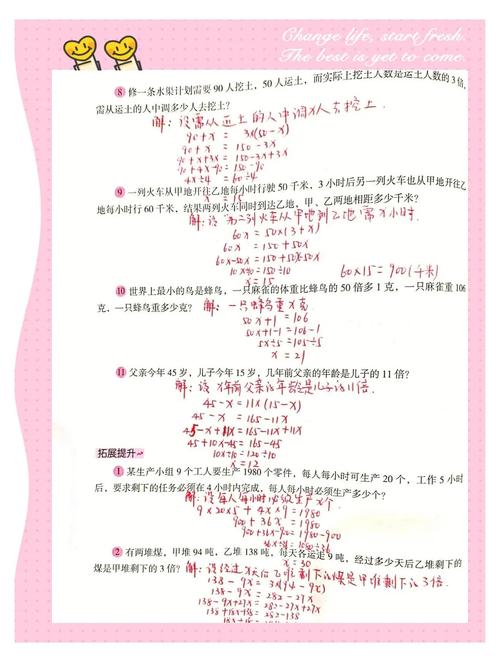 Change life, start fresh.
The best is yet to come.
8 修一条水渠计划需要 90 人挖土，50 人运土，而实际上挖土人数是运土人数的 3 倍，
需从运土的人中调多少人去挖土？
解：设需从运土的人中调x人去挖土.
90+x = 3x(50-x)
90+x = 150-3x
90+x+3x = 150-3x+3x
90+4x-90 = 150-90
4x÷4 = 60÷4
x = 15
9 一列火车从甲地开往乙地每小时行驶 50 千米，3 小时后另一列火车也从甲地开往乙
地每小时行 60 千米，结果两列火车同时到达乙地，甲、乙两地相距多少千米？
解：设第二列火车从甲地到乙地需x小时.
60x = 50x(3+x)
60x = 150+50x
60x-50x = 150+50x-50x
10x÷10 = 150÷10
x = 15
60x15=900(千米)
10 世界上最小的鸟是蜂鸟，一只麻雀的体重比蜂鸟的 50 倍多 1 克，一只麻雀重 106
克，一只蜂鸟重多少克？
解：一只蜂鸟重x克.
50x+1 = 106
50x+1-1 = 106-1
5x÷5 = 105÷5
x = 21
11 父亲今年 45 岁，儿子今年 15 岁，几年前父亲的年龄是儿子的 11 倍？
解：设x年前父亲的年龄是儿子的11倍.
45-x = 11x(15-x)
45-x = 165-11x
45-x+11x = 165-11x+11x
45+10x-45 = 165-45
10x÷10 = 120÷10
x = 12
拓展提升
1 某生产小组 9 个工人要生产 1980 个零件，每人每小时可生产 20 个，工作 5 小时
后，要求剩下的任务必须在 4 小时内完成，每人每小时必须生产多少个？
解：设每人每小时必须生产x个.
9x20x5+4xx9=1980
900+36x = 1980
900+36x-900 = 1980-900
36x÷36 = 1080÷36
x = 30
2 有两堆煤，甲堆 94 吨，乙堆 138 吨，每天各运走 9 吨，经过多少天后乙堆剩下的
煤是甲堆剩下的 3 倍？
解：设经过x天后乙堆剩下的煤是甲堆剩下的3倍.
138-9x = 3x(94-9x)
138-9x = 282-27x
138-9x+27x = 282-27x+27x
138+18x-138 = 282-138